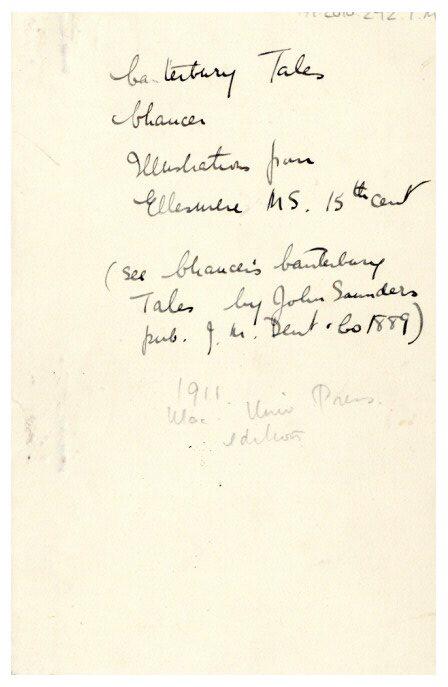 Canterbury Tales
Chaucer
Illustrations from
Ellesmere MS. 15th cent
(see Chaucer's Canterbury
Tales by John Saunders
pub. J. M. Dent & Co 1889)
1911.
Univ Press.
edition